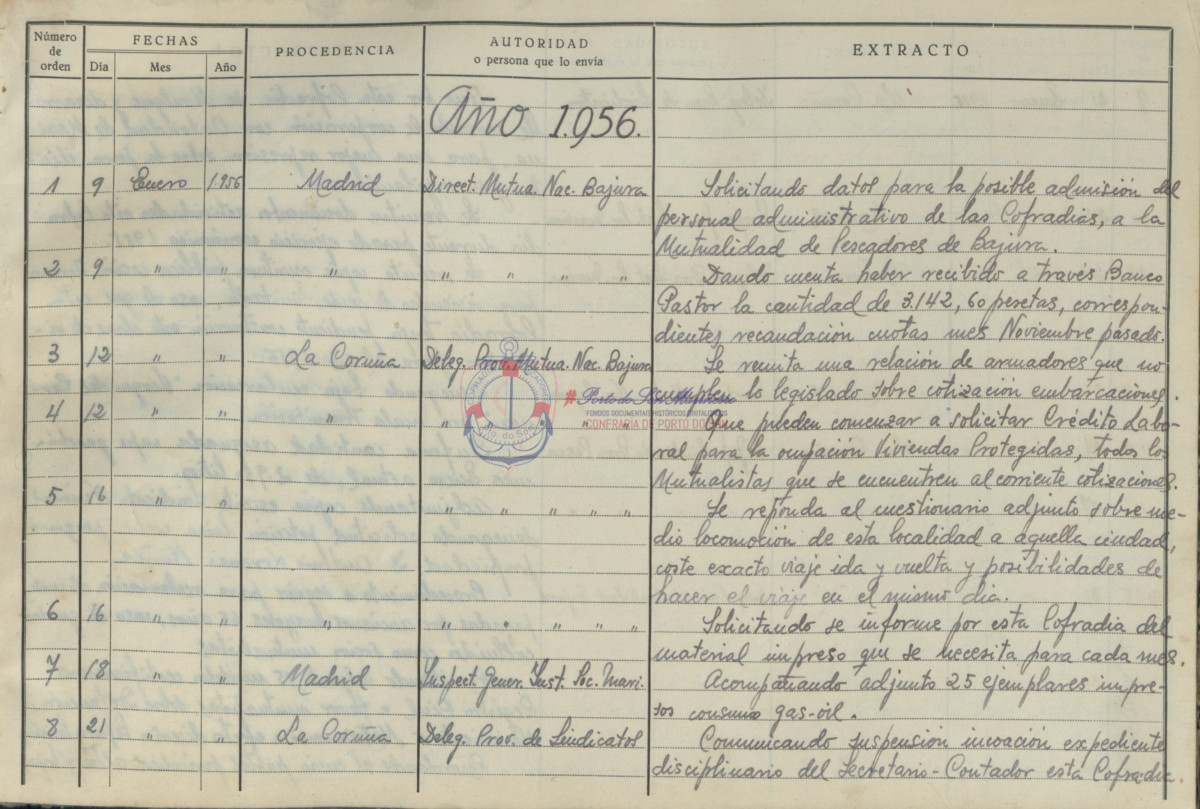 Número de orden FECHAS PROCEDENCIA AUTORIDAD o persona que lo envía EXTRACTO
Día Mes Año
Año 1.956.
1 9 Enero 1.956 Madrid Direct. Mutua. Nac. Bajura Solicitando datos para la posible admisión del
personal administrativo de las Cofradias, a la
Mutualidad de Pescadores de Bajura.
2 9 " " " " " " " Dando cuenta haber recibido a través Banco
Pastor la cantidad de 3.142,60 pesetas, correspon-
dientes recaudación cuotas mes Noviembre pasado.
3 12 " " La Coruña Deleg. Prov. Mutua. Nac. Bajura Se remita una relación de armadores que no
cumplen lo legislado sobre cotización embarcaciones.
4 12 " " " " " " " " Que pueden comenzar a solicitar Crédito Labo-
ral para la ocupación Viviendas Protegidas, todos los
Mutualistas que se encuentren al corriente cotizaciones.
5 16 " " " " " " " " Se responda al cuestionario adjunto sobre me-
dio locomoción de esta localidad a aquella ciudad,
coste exacto viaje ida y vuelta y posibilidades de
hacer el viaje en el mismo dia.
6 16 " " " " " " " " Solicitando se informe por esta Cofradia del
material impreso que se necesita para cada mes.
7 18 " " Madrid Inspect. Gener. Inst. Soc. Mari. Acompañando adjunto 25 ejemplares impre-
sos consumo gas-oil.
8 21 " " La Coruña Deleg. Prov. de Sindicatos Comunicando suspensión incoación expediente
disciplinario del Secretario-Contador esta Cofradia.
FONDOS DOCUMENTAIS HISTÓRICOS DIXITALIZADOS
CONFRARÍA DE PORTO DO SON